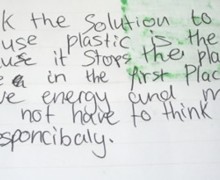 k the Solution to
use plastic is the
use it Stops the pla
e in the first Plac
ve energy and m
not have to think
sponcibaly.